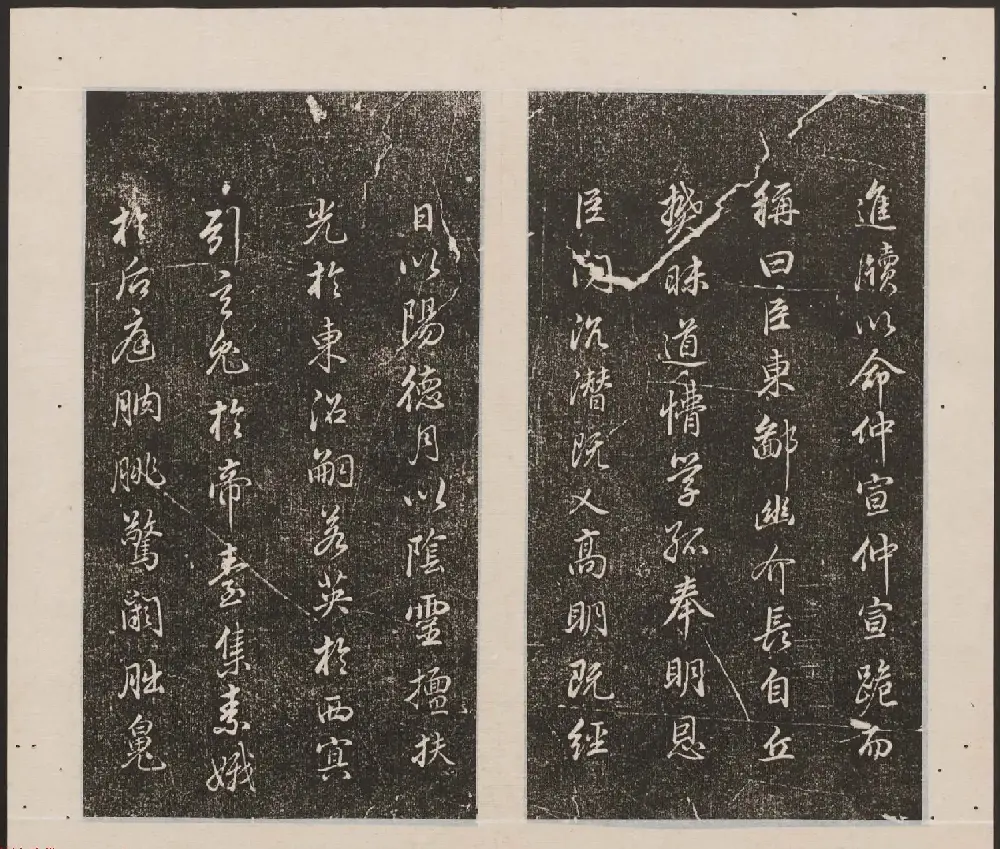 進牘以命仲宣仲宣跪而
稱曰臣東鄙幽介長自丘
樊昧道懵學孤奉明恩
臣聞沉潛既乂高明既經
日以陽德月以陰靈擅扶
光於東沼嗣若英於西冥
引玄兔於帝臺集素娥
於后庭朒朓驚闕朏鬼